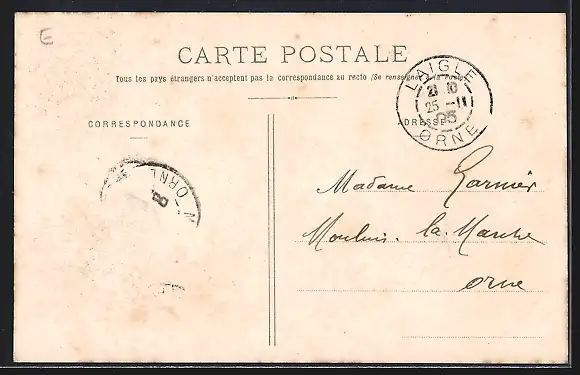 E
CARTE POSTALE
Tous les pays étrangers n'acceptent pas la correspondance au recto (Se renseigner à la Poste)
CORRESPONDANCE
ADRESSE
LAIGLE
21 10
25 -11
05
ORNE
N-ORNE
8
Madame Garnier
Moulins. la. Marche
orne